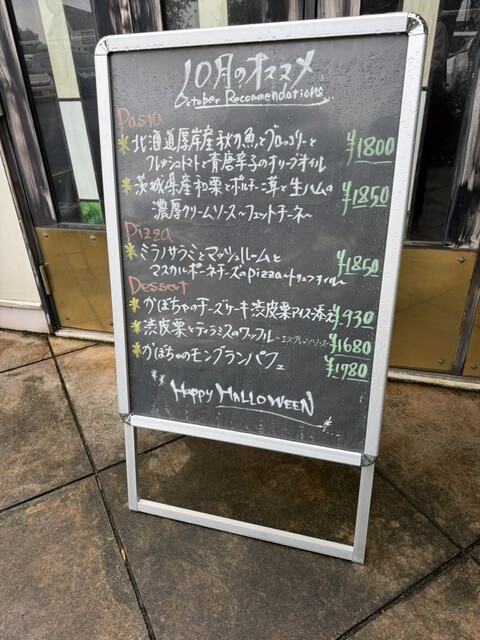 10月のオススメ
October Recommendations
Pasta
* 北海道厚岸産秋刀魚とブロッコリーと
フレッシュトマトと青唐辛子のオリーブオイル ¥1800
* 茨城県産和栗とポルチーニ茸と生ハムの
濃厚クリームソース〜フェットチーネ〜 ¥1850
Pizza
* ミラノサラミとマッシュルームと
マスカルポーネチーズのpizza〜トリュフオイル〜 ¥1850
Dessert
* かぼちゃのチーズケーキ渋皮栗アイス添え ¥930
* 渋皮栗とティラミスのワッフル〜エスプレッソソース〜 ¥1680
* かぼちゃのモンブランパフェ ¥1780
Happy HALLOWEEN